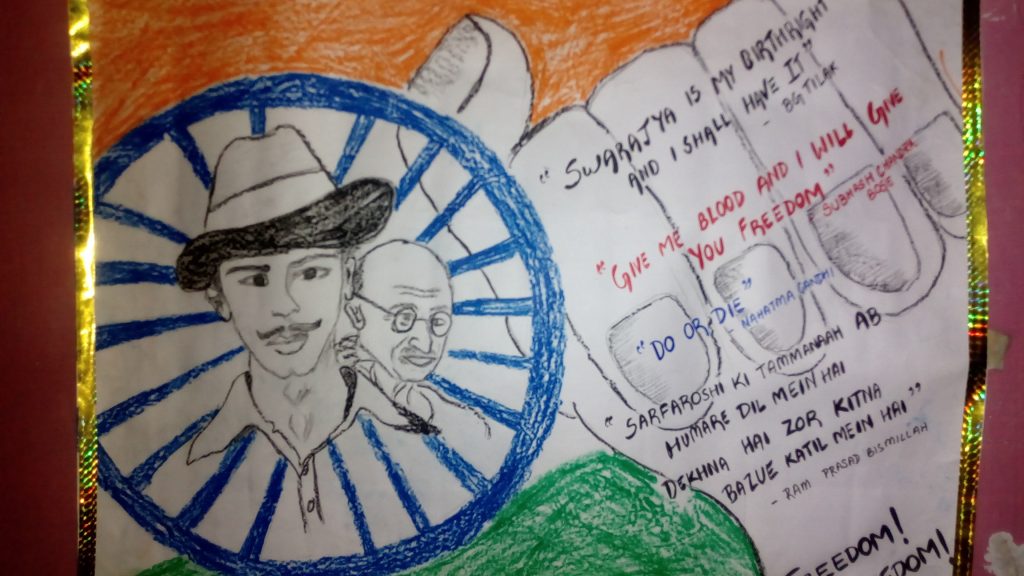 "SWARAJYA IS MY BIRTHRIGHT
AND I SHALL HAVE IT"
- BG TILAK
"GIVE ME BLOOD AND I WILL GIVE
YOU FREEDOM"
SUBHASH CHANDRA
BOSE
"DO OR DIE"
- MAHATMA GANDHI
"SARFAROSHI KI TAMMANAAH AB
HUMARE DIL MEIN HAI
DEKHNA HAI ZOR KITNA
BAZUE KATIL MEIN HAI"
- RAM PRASAD BISMILLAH
FREEDOM!